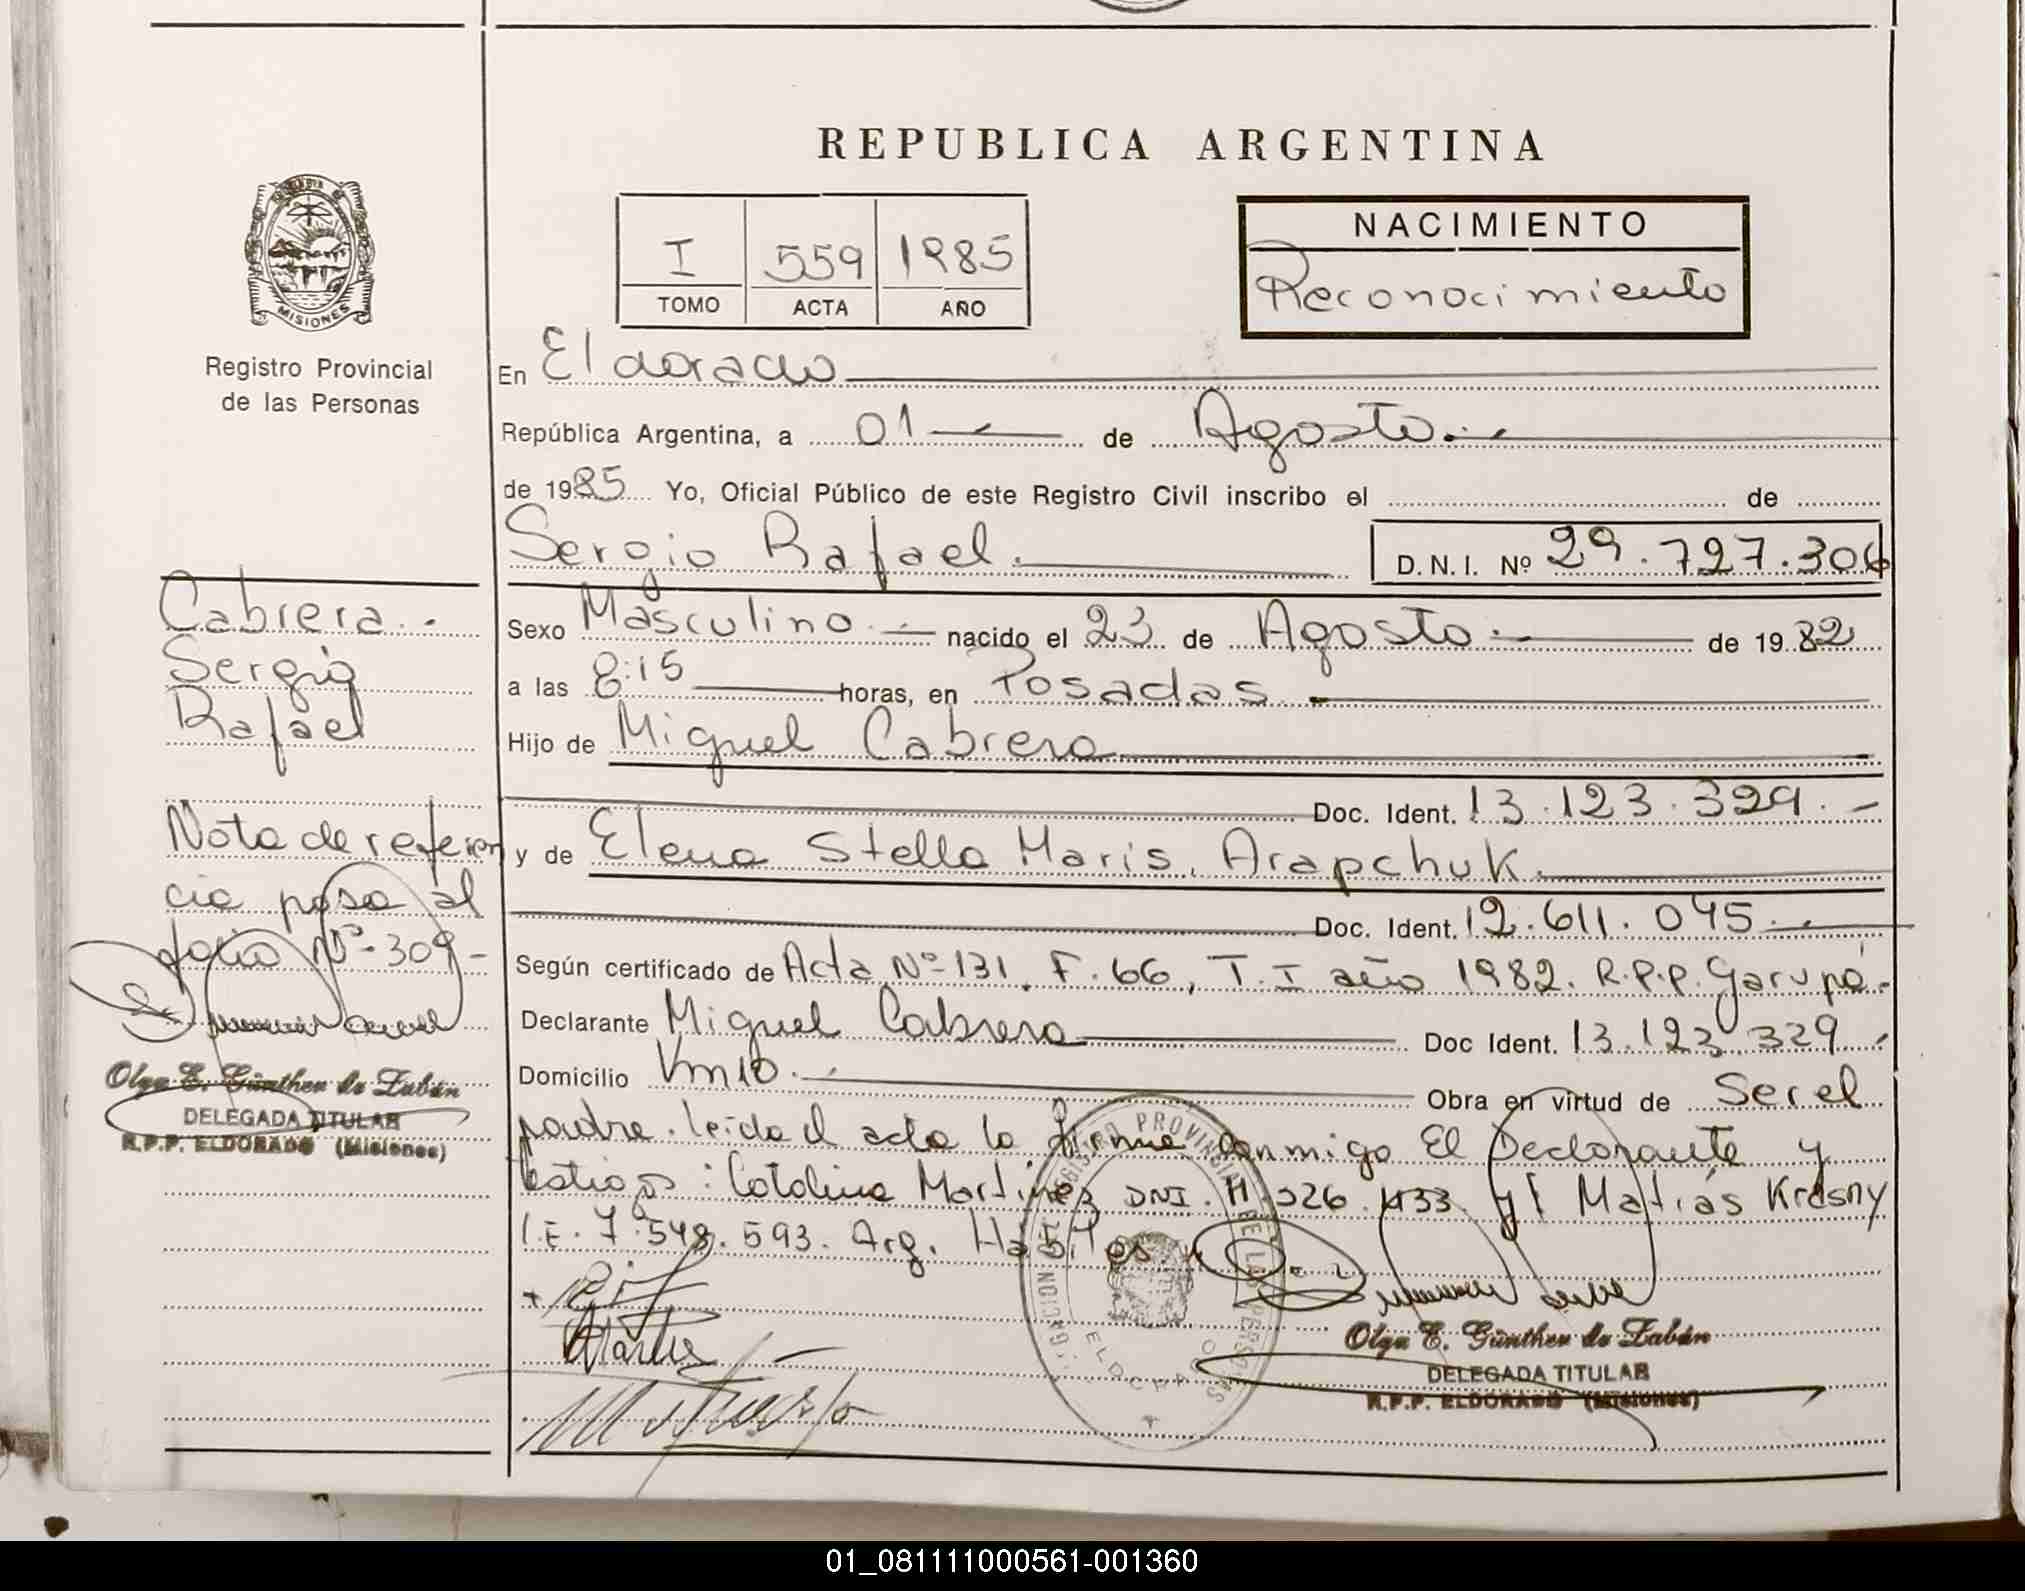 REPUBLICA ARGENTINA
PROVINCIA
MISIONES
Registro Provincial
de las Personas
I 559 1985
TOMO ACTA AÑO
NACIMIENTO
Reconocimiento
En Eldorado
República Argentina, a 01 de Agosto.
de 1985 Yo, Oficial Público de este Registro Civil inscribo el de
Sergio Rafael. D.N.I. Nº 29.727.306
Sexo Masculino nacido el 23 de Agosto de 1982
a las 8:15 horas, en Posadas
Hijo de Miguel Cabrera
Doc. Ident. 13.123.329.-
y de Elena Stella Maris Arapchuk
Doc. Ident. 12.611.045
Según certificado de Acta Nº 131, F. 66, T. I año 1982. R.P.P. Garupá.
Declarante Miguel Cabrera Doc Ident. 13.123.329
Domicilio Km 10. Obra en virtud de Ser el
padre. leida el acta la firma conmigo El Declarante y
testigos: Catalina Martinez DNI. 026.433 y Matiás Krasny
I.E. 7.548.593. Arg. Habiles
Cabrera
Sergio
Rafael
Nota de referen
cia pasa al
folio Nº 309-
Olga E. Günther de Zabán
DELEGADA TITULAR
R.P.P. ELDORADO (Misiones)
REGISTRO PROVINCIAL DE LAS PERSONAS
ELDORADO
Olga E. Günther de Zabán
DELEGADA TITULAR
R.P.P. ELDORADO (Misiones)
01_081111000561-001360